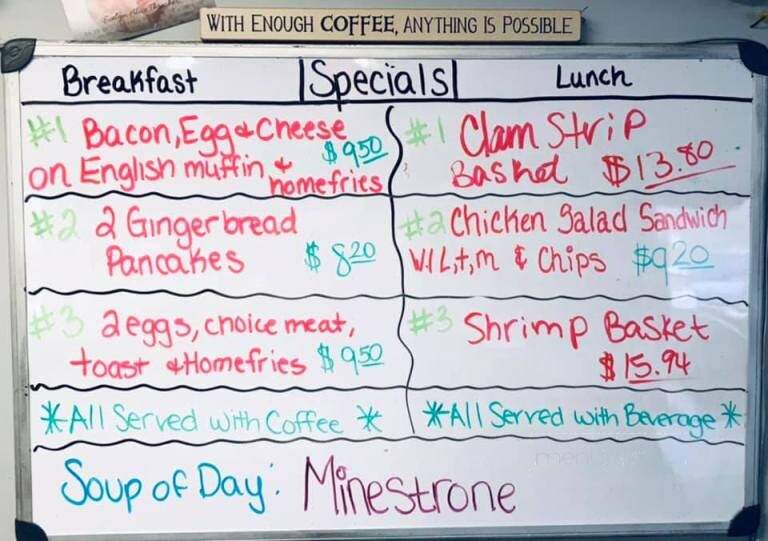 WITH ENOUGH COFFEE, ANYTHING IS POSSIBLE
Breakfast
#1 Bacon, Egg & Cheese
$9.50
on English muffin &
homefries
#2 2 Gingerbread
Pancakes $8.20
#3 2 eggs, choice meat,
toast & Homefries $9.50
*All Served with Coffee*
Specials
Lunch
#1 Clam Strip
Basket $13.80
#2 Chicken Salad Sandwich
W/L,t,m & Chips $9.20
#3 Shrimp Basket
$15.94
*All Served with Beverage*
Soup of Day: Minestrone